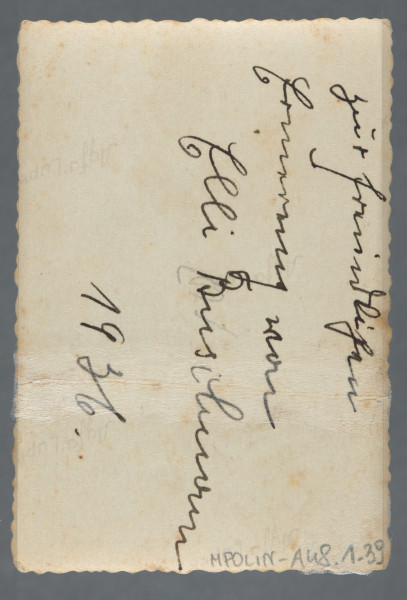 zur freundlichen
Erinnerung von
Elli Buschmann
1936.
MPOLIN-A48.1.39